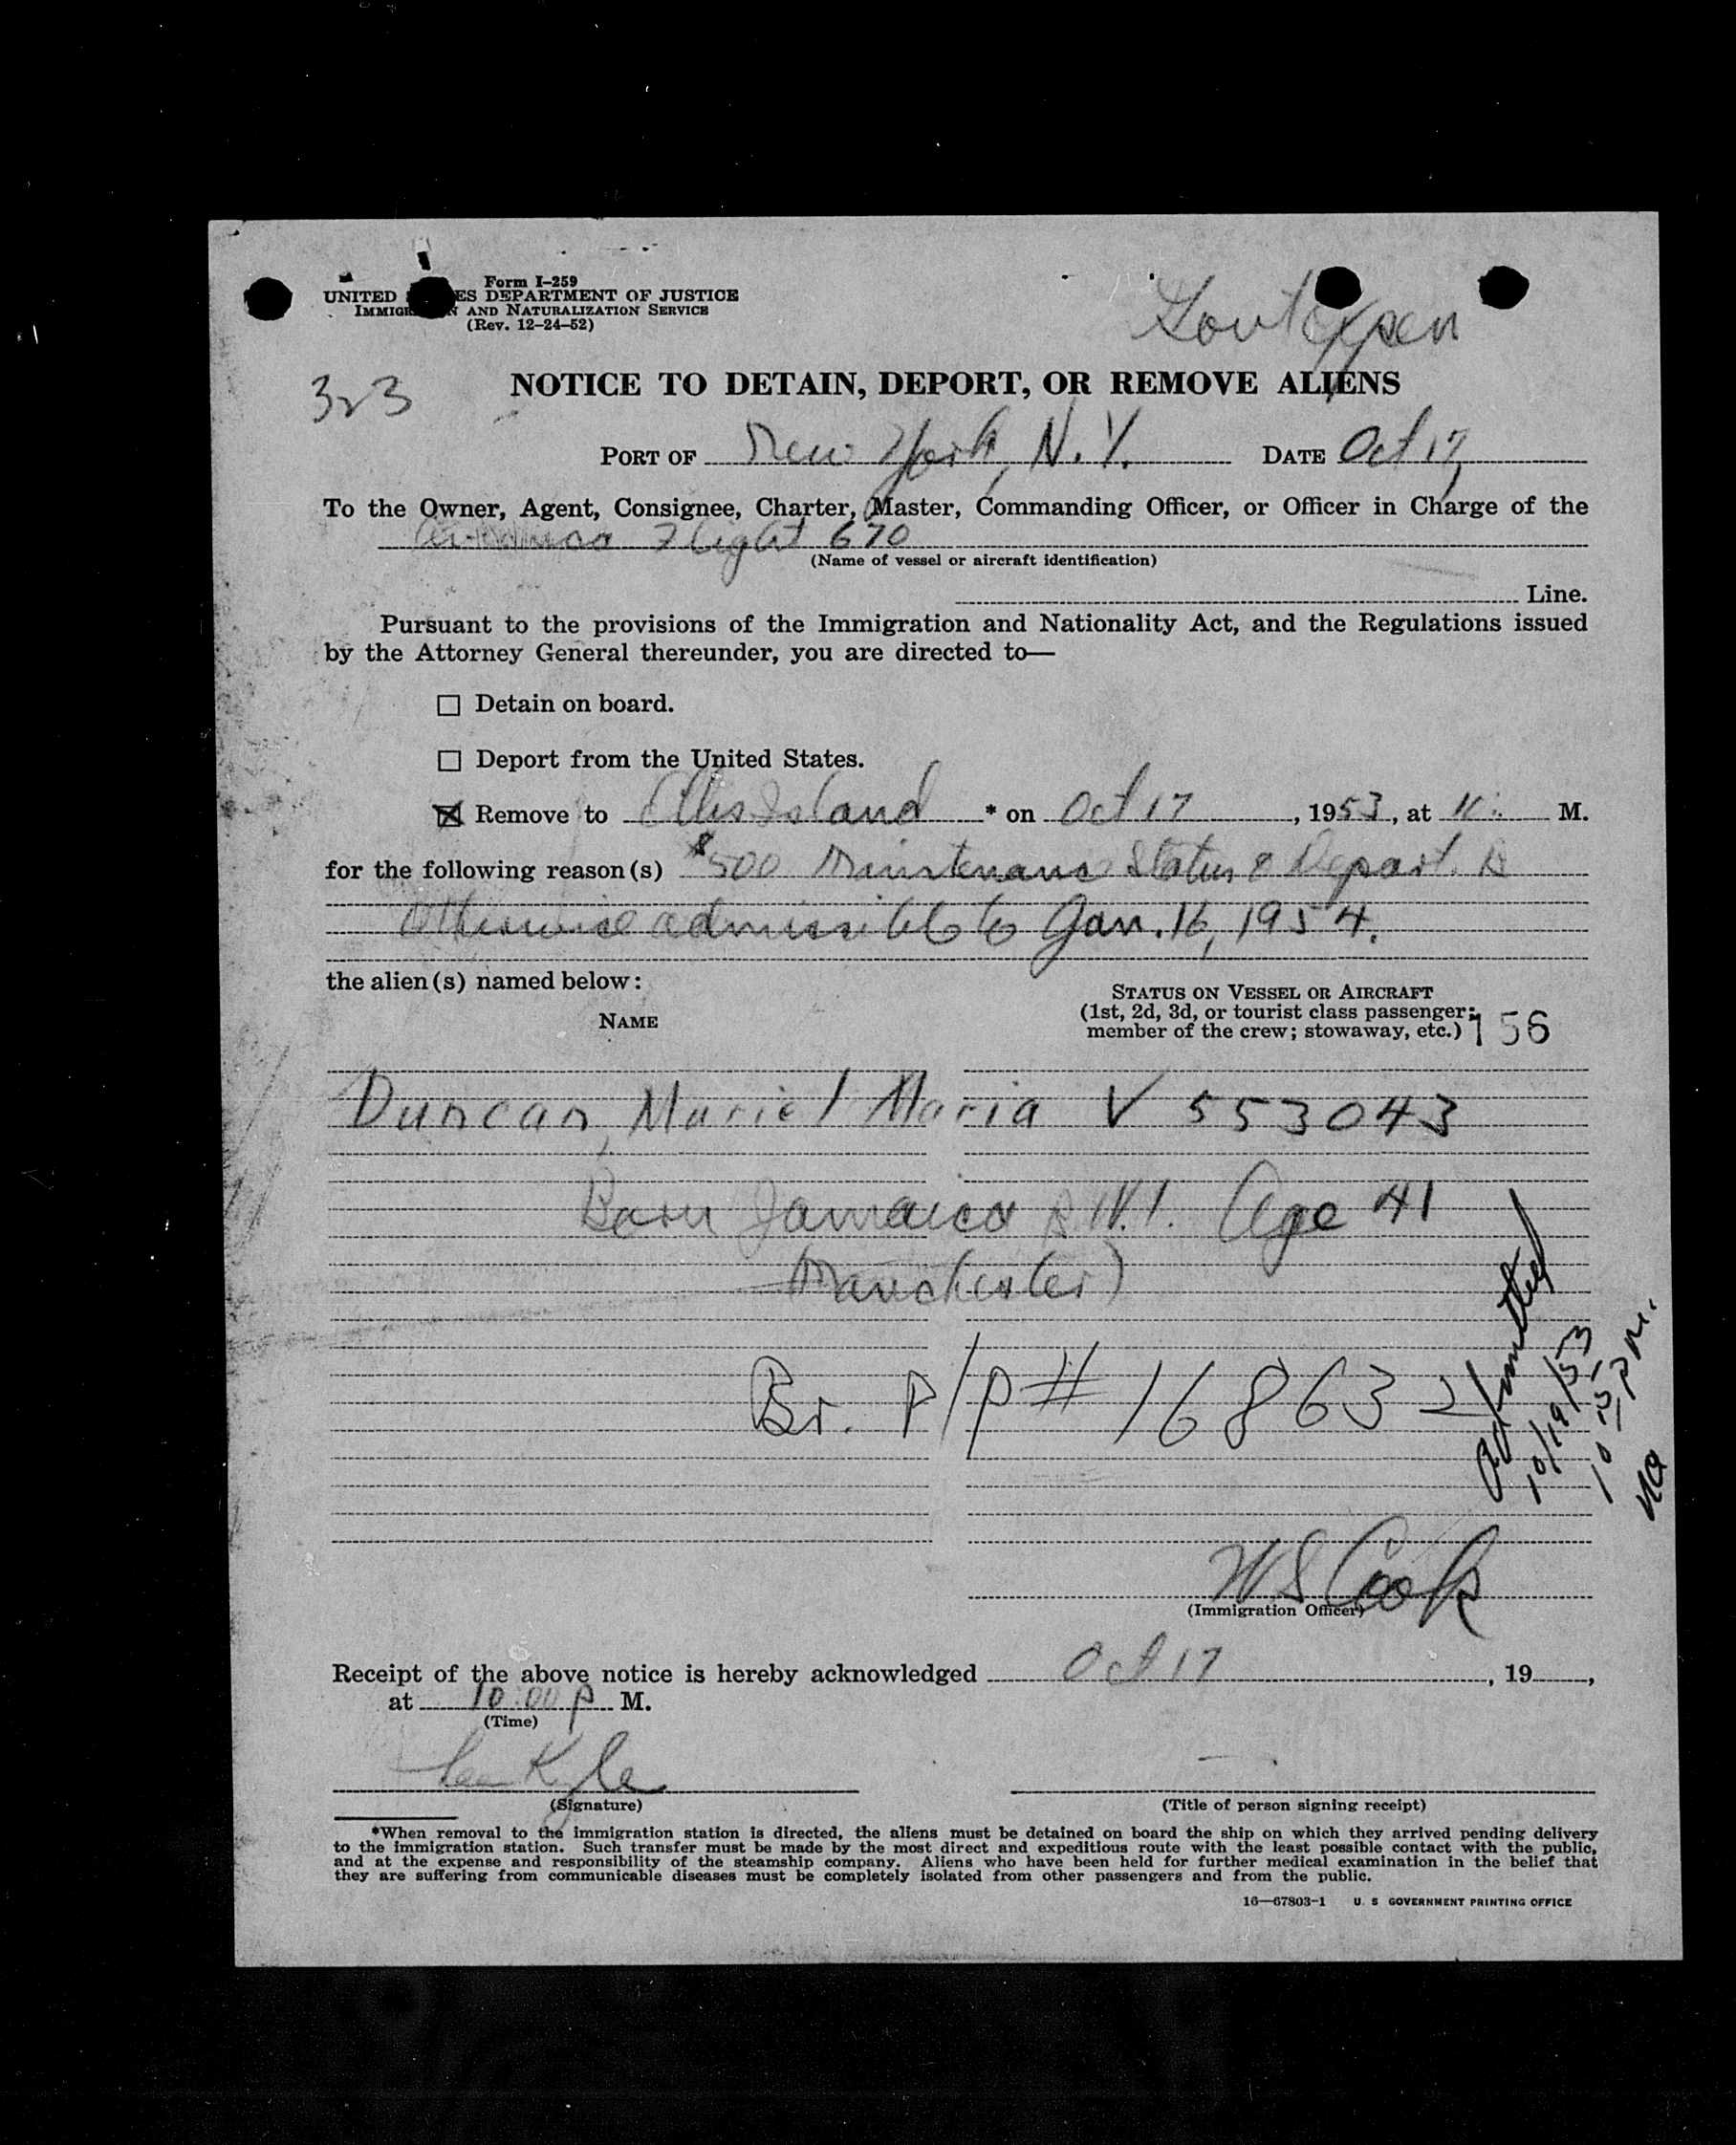 Form I-259
UNITED ES DEPARTMENT OF JUSTICE
IMMIGR N AND NATURALIZATION SERVICE
(Rev. 12-24-52)
Govt Expen
323
NOTICE TO DETAIN, DEPORT, OR REMOVE ALIENS
PORT OF New York, N.Y. DATE Oct 17
To the Owner, Agent, Consignee, Charter, Master, Commanding Officer, or Officer in Charge of the
Flight 670
(Name of vessel or aircraft identification)
Line.
Pursuant to the provisions of the Immigration and Nationality Act, and the Regulations issued
by the Attorney General thereunder, you are directed to—
☐ Detain on board.
☐ Deport from the United States.
☒ Remove to Ellis Island * on Oct 17, 1953, at 11: M.
for the following reason(s) $500 Maintenance Status & Depart.
Otherwise admissible to Jan. 16, 1954.
the alien(s) named below:
NAME
STATUS ON VESSEL OR AIRCRAFT
(1st, 2d, 3d, or tourist class passenger;
member of the crew; stowaway, etc.) 156
Duncan, Muriel Maria V 553043
Born Jamaica B.W.I. Age 41
Manchester)
Br. P/P # 168632
Admitted
10/19/53
PM.
W S Cook
(Immigration Officer)
Receipt of the above notice is hereby acknowledged Oct 17, 19 ,
at 10:00 p M.
(Time)
Kyle
(Signature)
(Title of person signing receipt)
*When removal to the immigration station is directed, the aliens must be detained on board the ship on which they arrived pending delivery
to the immigration station. Such transfer must be made by the most direct and expeditious route with the least possible contact with the public,
and at the expense and responsibility of the steamship company. Aliens who have been held for further medical examination in the belief that
they are suffering from communicable diseases must be completely isolated from other passengers and from the public.
16—67803-1 U. S GOVERNMENT PRINTING OFFICE